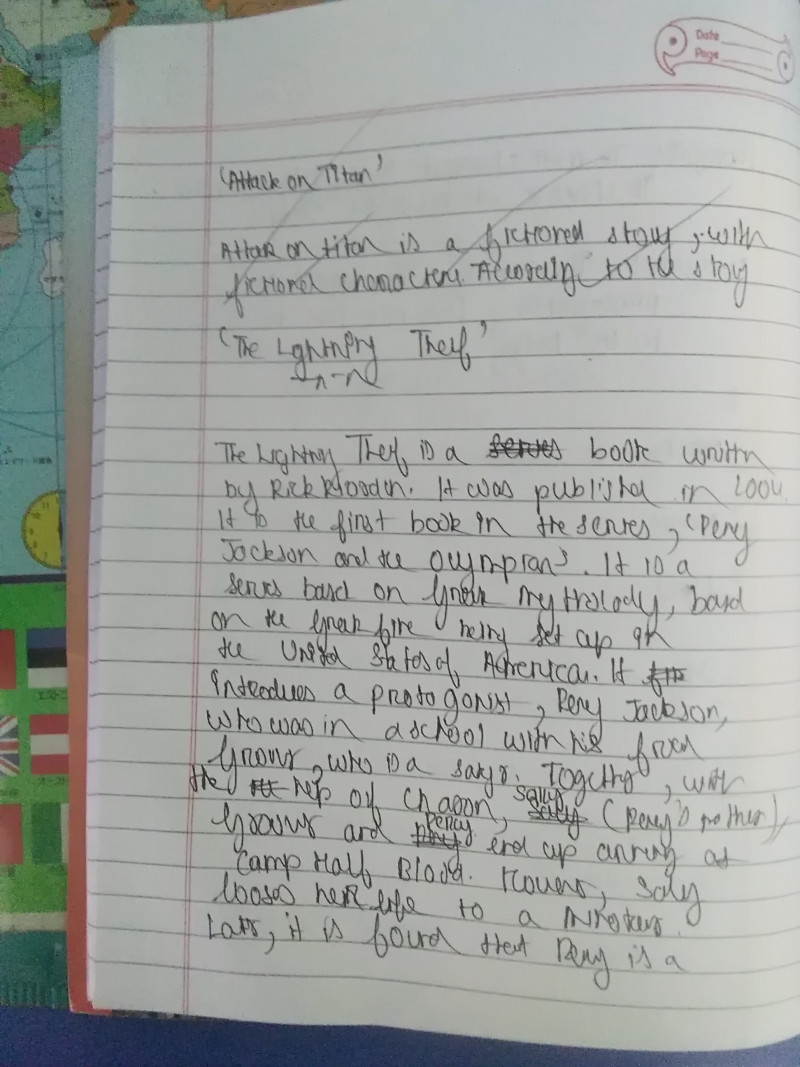 Date
Page
'Attack on Titan'
Attack on titan is a fictional story, with
fictional characters. According to the story
'The Lightning Theif'
The Lightning Theif is a series book written
by Rick Riordan. It was published in 2004.
It is the first book in the series, 'Percy
Jackson and the Olympians'. It is a
series based on Greek mythology, based
on the Greek being set up in
the United States of America. It
introduces a protogonist, Percy Jackson,
who was in a school with his friend
Grover, who is a satyr. Together, with
the help of Chaoon, Sally (Percy's mother),
Grover and Percy end up arriving at
Camp Half Blood. However, Sally
looses her life to a
Later, it is found that Percy is a